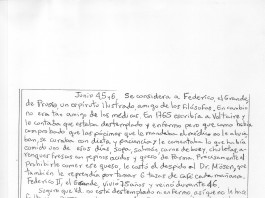 Junio 45,6, Se considera a Federico, el Grande,
de Prusia, un espíritu ilustrado amigo de los filósofos. En cambio
no era tan amigo de los médicos. En 1765 escribía a Voltaire y
le contaba que estaba destemplado y enfermo pero que como había
comprobado que las pócimas que le mandaban el médico no le alivia-
ban, se curaba con dieta y paciencia y le comentaba lo que había
comido uno de esos días: Sopa, salmón, carne de buey, chuletas,
frescas con pepinos acidos y queso de Parma. Precisamente el
prohibirle comer ese queso, le costó el despido al Dr. Mösen, que
también le reprendía por tomar 6 tazas de café cada mañana.
Federico II, el Grande, vivió 75 años y reinó durante 46.
Seguro que Vd. no está destemplado ni enfermo, así que no le ha